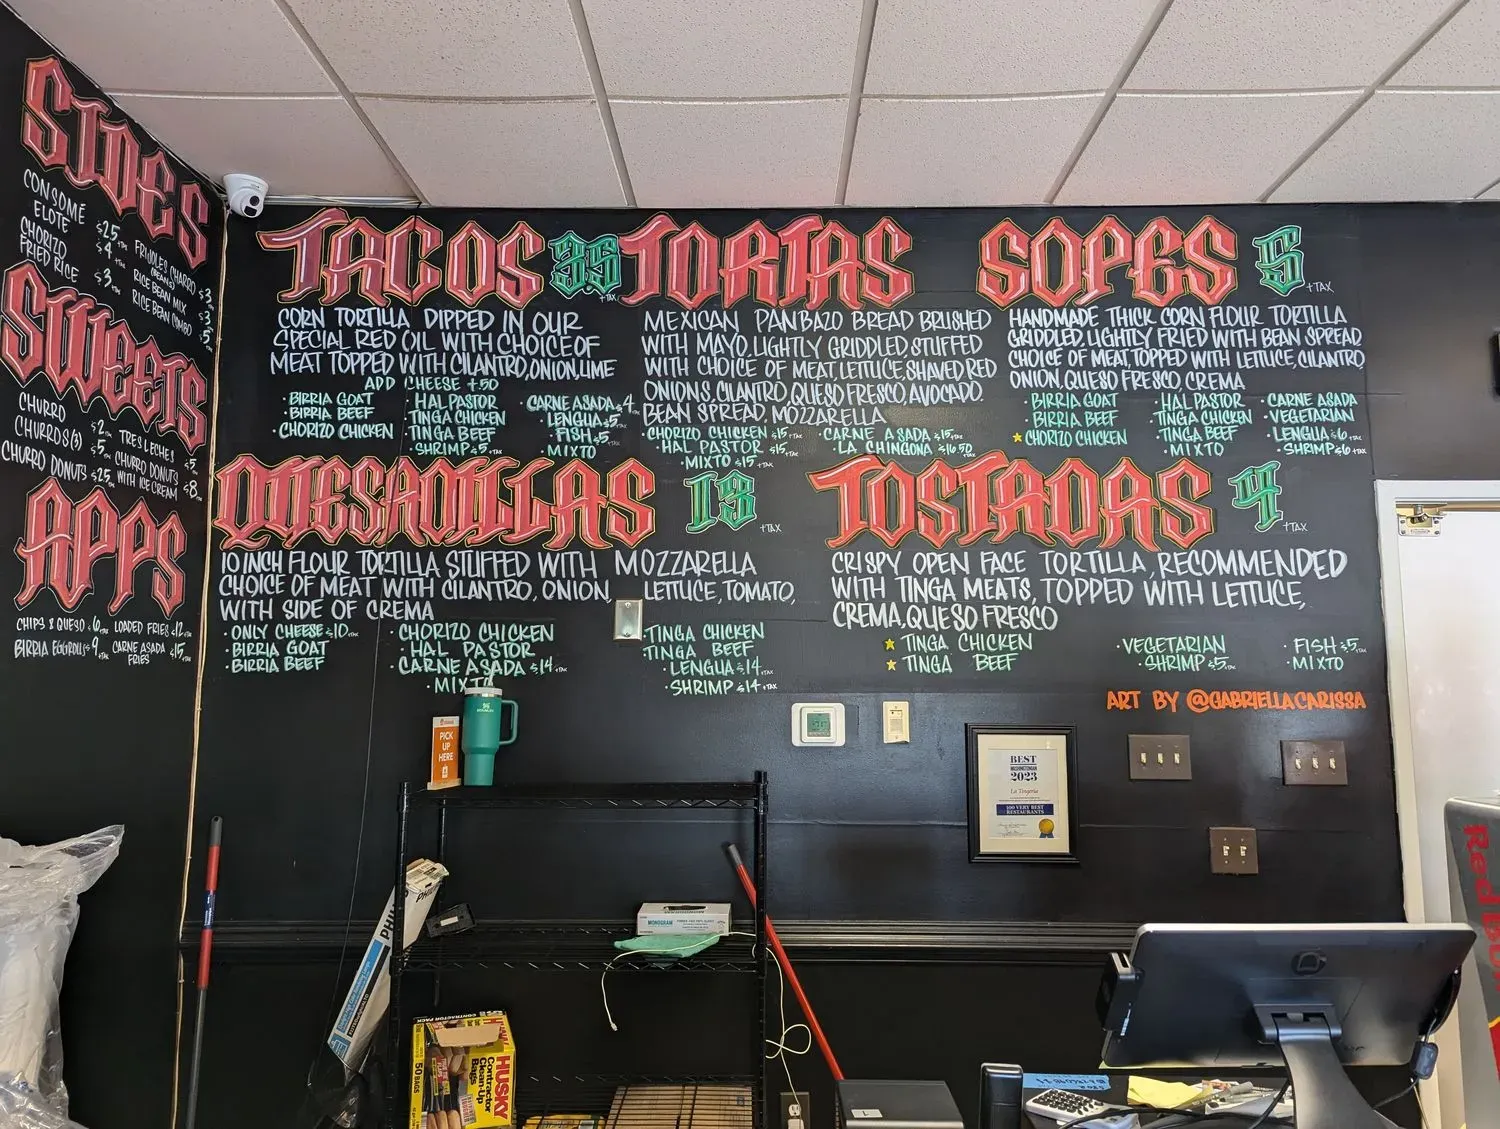 SIDES
CONSOME $2.5 +TAX
ELOTE $4 +TAX
CHORIZO
FRIED RICE $3 +TAX
FRIJOLES CHARRO
(BEANS) $3
RICE BEAN MIX $3
RICE BEAN COMBO $5
SWEETS
CHURRO $2
CHURROS (3) $5
CHURRO DONUTS $2.5
TRES LECHES $5
CHURRO DONUTS
WITH ICE CREAM $8
APPS
CHIPS & QUESO $6 +TAX
BIRRIA EGGROLLS $9 +TAX
LOADED FRIES $12 +TAX
CARNE ASADA $15 +TAX
FRIES
TACOS 3.5 +TAX
CORN TORTILLA DIPPED IN OUR
SPECIAL RED OIL WITH CHOICE OF
MEAT TOPPED WITH CILANTRO, ONION, LIME
ADD CHEESE +.50
· BIRRIA GOAT
· BIRRIA BEEF
· CHORIZO CHICKEN
· HAL PASTOR
· TINGA CHICKEN
· TINGA BEEF
· SHRIMP $5 +TAX
· CARNE ASADA $4 +TAX
· LENGUA $5 +TAX
· FISH $5 +TAX
· MIXTO
TORTAS
MEXICAN PANBAZO BREAD BRUSHED
WITH MAYO, LIGHTLY GRIDDLED, STUFFED
WITH CHOICE OF MEAT, LETTUCE, SHAVED RED
ONIONS, CILANTRO, QUESO FRESCO, AVOCADO,
BEAN SPREAD, MOZZARELLA
· CHORIZO CHICKEN $15 +TAX
· HAL PASTOR $15 +TAX
· MIXTO $15 +TAX
· CARNE ASADA $15 +TAX
· LA CHINGONA $16.50 +TAX
SOPES 5 +TAX
HANDMADE THICK CORN FLOUR TORTILLA
GRIDDLED, LIGHTLY FRIED WITH BEAN SPREAD
CHOICE OF MEAT, TOPPED WITH LETTUCE, CILANTRO,
ONION, QUESO FRESCO, CREMA
· BIRRIA GOAT
· BIRRIA BEEF
CHORIZO CHICKEN
· HAL PASTOR
· TINGA CHICKEN
· TINGA BEEF
· MIXTO
· CARNE ASADA
· VEGETARIAN
· LENGUA $6 +TAX
· SHRIMP $6 +TAX
QUESADILLAS 13 +TAX
10 INCH FLOUR TORTILLA STUFFED WITH MOZZARELLA
CHOICE OF MEAT WITH CILANTRO, ONION, LETTUCE, TOMATO,
WITH SIDE OF CREMA
· ONLY CHEESE $10 +TAX
· BIRRIA GOAT
· BIRRIA BEEF
· CHORIZO CHICKEN
· HAL PASTOR
· CARNE ASADA $14 +TAX
· MIXTO
· TINGA CHICKEN
TINGA BEEF
· LENGUA $14
· SHRIMP $14 +TAX
TOSTADAS 4 +TAX
CRISPY OPEN FACE TORTILLA, RECOMMENDED
WITH TINGA MEATS, TOPPED WITH LETTUCE,
CREMA, QUESO FRESCO
TINGA CHICKEN
TINGA BEEF
· VEGETARIAN
· SHRIMP $5 +TAX
· FISH $5 +TAX
· MIXTO
ART BY @GABRIELLACARISSA
PICK
UP
HERE
BEST
WASHINGTONIAN
2023
La Tingeria
100 VERY BEST
RESTAURANTS
MONOGRAM
CONTRACTOR PACK
HUSKY
Contractor
Clean-Up
Bags
50 BAGS
Red Bull